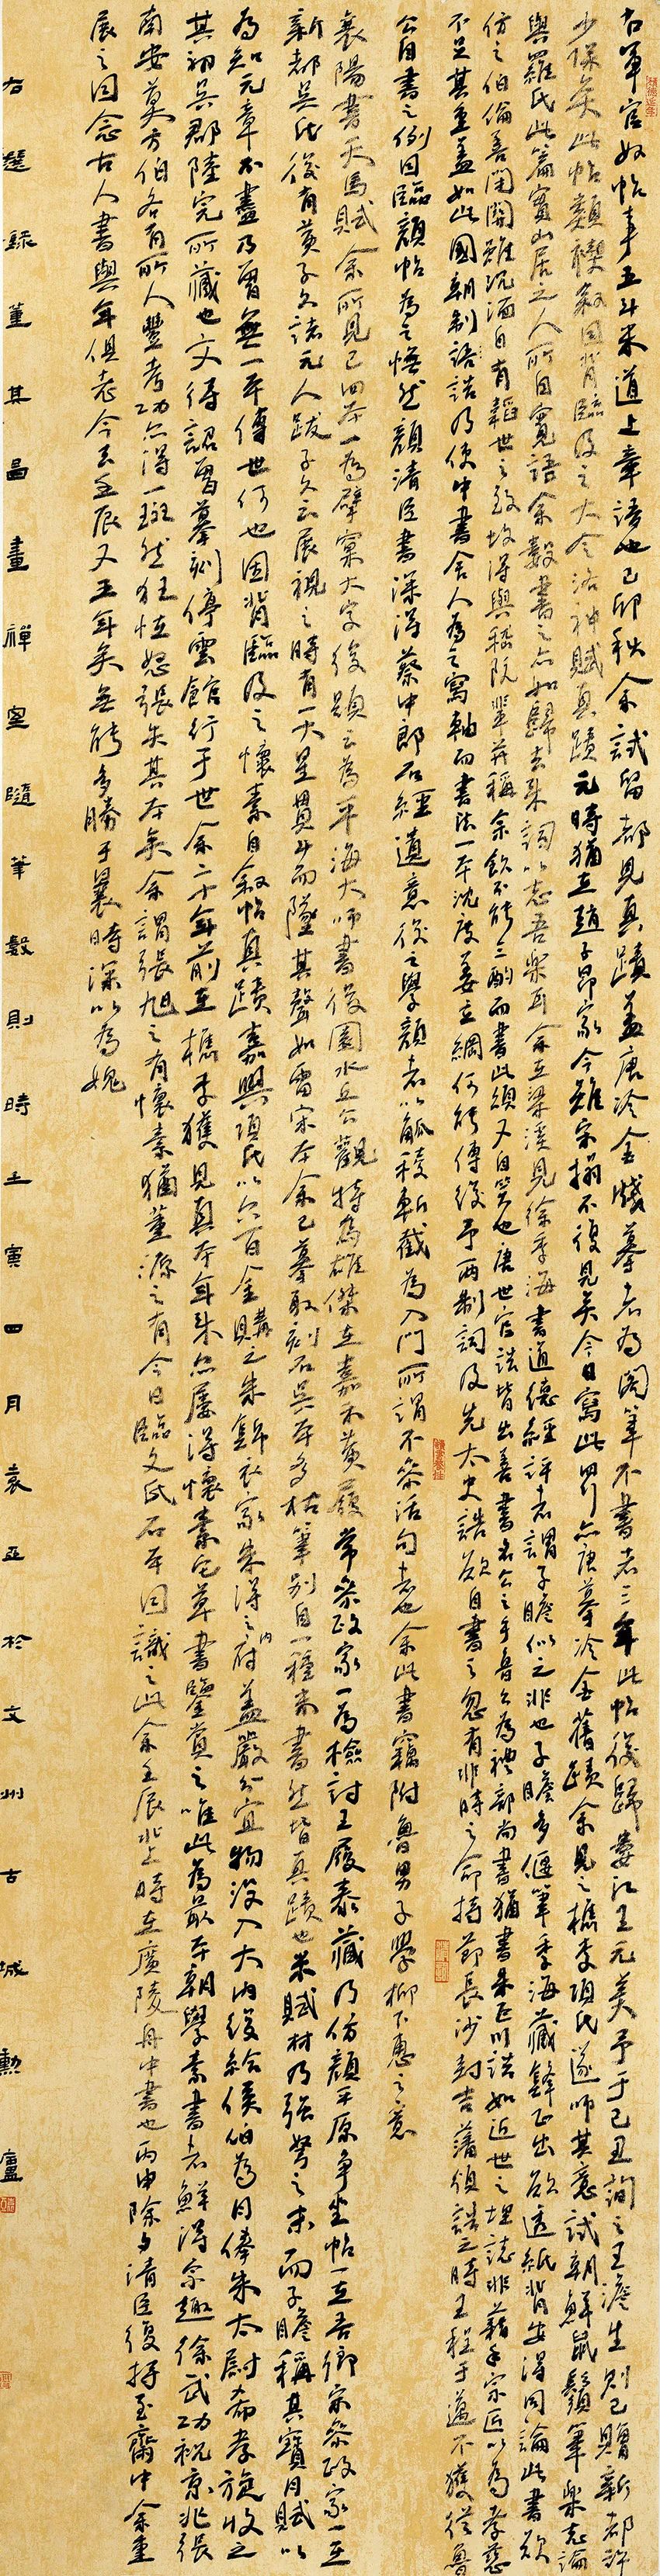 右军官奴帖事五斗米道上章語也己卯秋余試留都見真蹟蓋唐冷金牋摹者為閣筆不書者三年此帖後歸婁江王元美予于己丑詢之王澹生則已贈新都許
少保矣此帖類禊叙因背臨及之大令洛神賦真蹟元時猶在趙子昂家今雖宋搨不復見矣今日寫此四亦唐摹冷金舊蹟余見之檇李項氏遂師其意試朝鮮鼠鬚筆樂志論
與羅氏此篇實山居之人所自寬語余數書之亦如歸去來詞以志吾樂耳余在梁溪見徐季海書道德經評者謂子瞻似之非也子瞻多偃筆季海藏鋒正出欲透紙背安得同論此書欲
仿之伯倫善閉關雖沉湎自有韜世之致故得與嵇阮輩並稱余飲不能三酌而書此頌又自笑也唐世官誥皆出善書名公之手魯公為禮部尚書猶書朱巨川誥如近世之埋誌非藉手宗匠以為孝慈
不足其重蓋如此國朝制語誥乃使中書舍人為之寫軸而書法一本沈度姜立綱何能傳後予兩制詞及先太史誥欲自書之忽有非時之命持節長沙封吉藩領誥之時王程于邁不獲從魯
公自書之例因臨顏帖為之憮然顏清臣書深得蔡中郎石經遺意後之學顏者以觚稜斬截為入門所謂不參活句者也余此書竊附魯男子學柳下惠之意
襄陽書天馬賦余所見已四本一為擘窠大字後題云為平海大師書後園水丘公觀特為雄傑在嘉禾黃履常參政家一為檢討王履泰藏乃仿顏平原爭坐帖一在吾鄉宋參政家一在
新都吳氏後有黃子久諸元人跋子久云展視之時有一大星貫斗而墜其聲如雷宋本余已摹取刻石吳本多枯筆別自一種米書然皆真蹟也米賦材乃強弩之末而子瞻稱其寶月賦以
為知元章不盡乃曾無一本傳世何也因背臨及之懷素自敘帖真蹟嘉興項氏以六百金購之朱錦衣家朱得之內府蓋嚴分宜物沒入大內後給侯伯為月俸朱太尉希孝旋收之
其初吳郡陸完所藏也文待詔曾摹刻停雲館行于世余二十年前在檇李獲見真本年來亦屢得懷素它草書鑒賞之唯此為最本朝學素書者鮮得宗趣徐武功祝京兆張
南安莫方伯各有所入豐考功亦得一斑然狂怪怒張失其本矣余謂張旭之有懷素猶董源之有今日臨文氏石本因識之此余壬辰北上時在廣陵舟中書也丙申除夕清臣復持至齋中余重
展之因念古人書與年俱老今去壬辰又五年矣無能多勝于曩時深以為愧
右選錄董其昌畫禪室隨筆數則時壬寅四月袁亞於文州古城勳廬